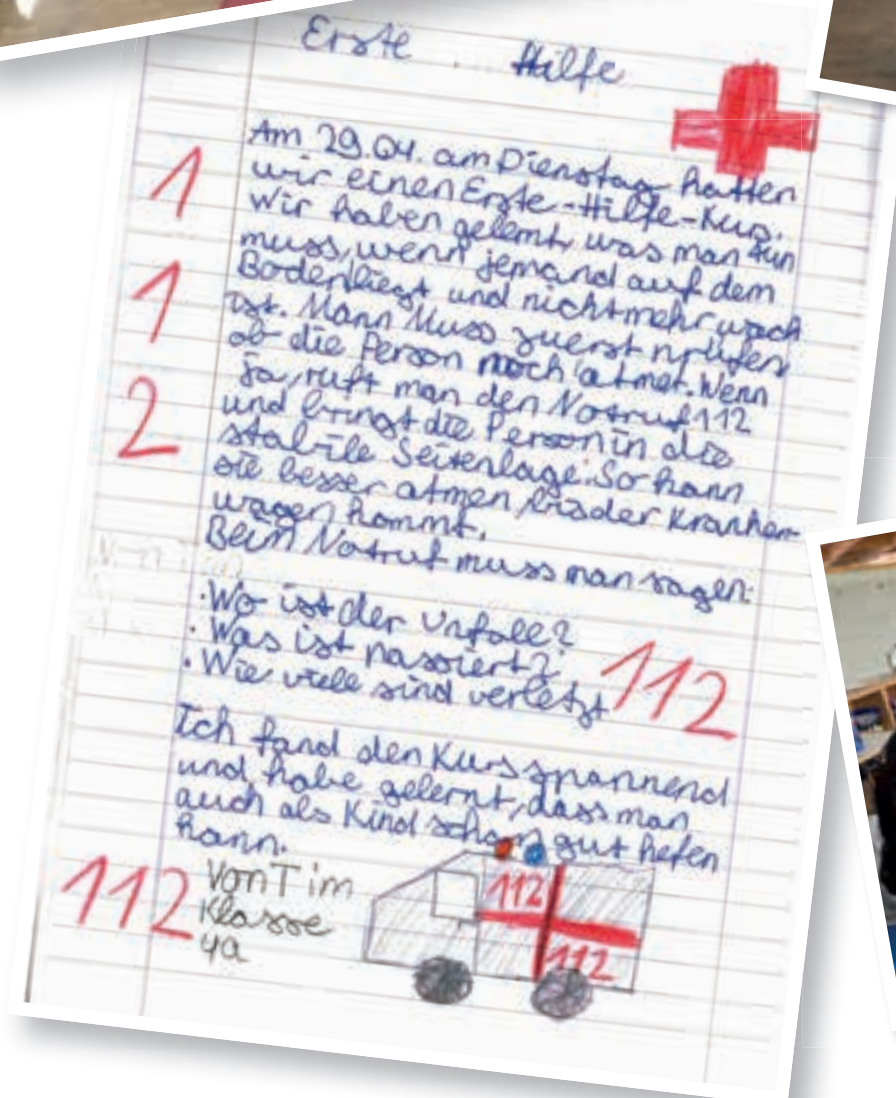 Erste Hilfe
Am 29.04. am Dienstag hatten
wir einen Erste-Hilfe-Kurs.
Wir haben gelernt, was man tun
muss, wenn jemand auf dem
Boden liegt und nicht mehr wach
ist. Mann Muss zuerst prüfen
ob die Person noch atmet. Wenn
ja, ruft man den Notruf 112
und bringt die Person in die
stabile Seitenlage. So kann
sie besser atmen, bis der Kranken-
wagen kommt.
Beim Notruf muss man sagen:
· Wo ist der Unfall?
· Was ist passiert?
· Wie viele sind verletzt
Ich fand den Kurs spannend
und habe gelernt, dass man
auch als Kind schon gut helfen
kann.
Von Tim
Klasse
4a
1
1
2
112
112
112
112